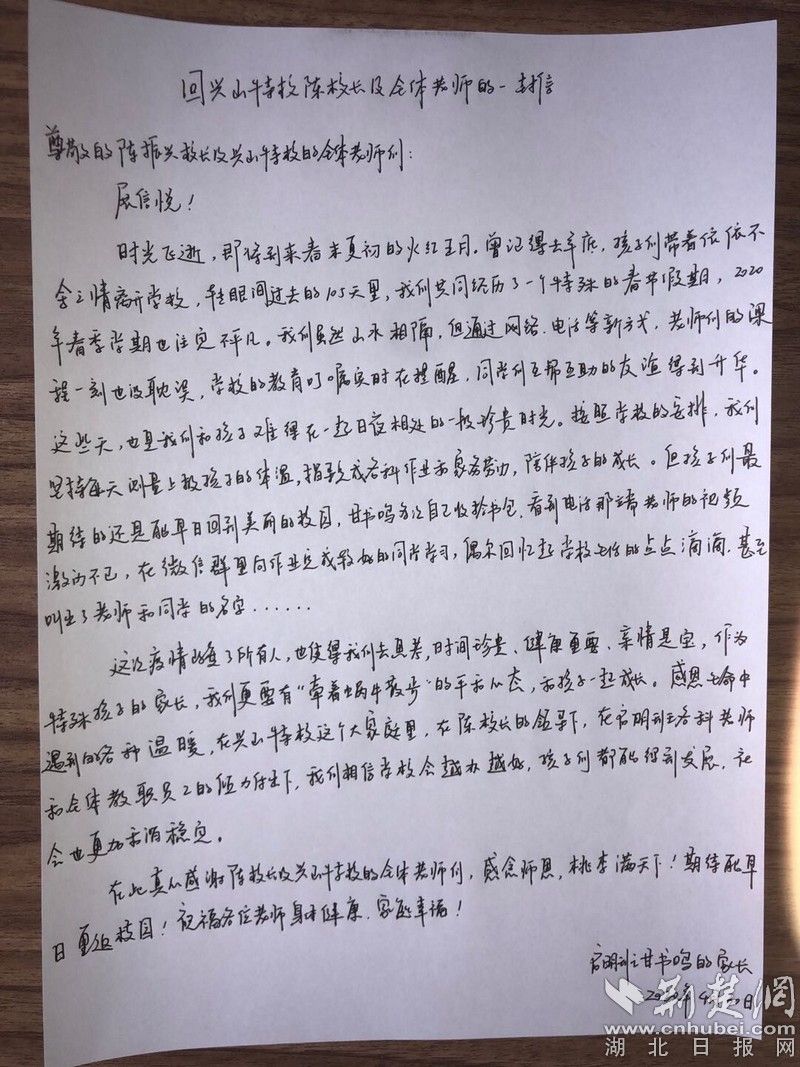 回兴山特校陈校长及全体老师的一封信
尊敬的陈振兴校长及兴山特校的全体老师们：
展信悦！
时光飞逝，即将到来春末夏初的火红五月。曾记得去年底，孩子们带着依依不
舍之情离开学校，转眼间过去的105天里，我们共同经历了一个特殊的春节假期，2020
年春季学期也注定不平凡。我们虽然山水相隔，但通过网络、电话等新方式，老师们的课
程一刻也没耽误，学校的教育叮嘱实时在提醒，同学们互帮互助的友谊得到升华。
这些天，也是我们和孩子难得在一起日夜相处的一段珍贵时光。按照学校的安排，我们
坚持每天测量上报孩子的体温，指导完成各科作业和家务劳动，陪伴孩子的成长。但孩子们最
期待的还是能早日回到美丽的校园，甘书鸣多次自己收拾书包，看到电话那端老师的视频
激动不已，在微信群里向作业完成较好的同学学习，偶尔回忆起学校生活的点点滴滴，甚至
叫出了老师和同学的名字……
这次疫情改变了所有人，也使得我们去思考，时间珍贵、健康重要、亲情是宝，作为
特殊孩子的家长，我们更要有“牵着蜗牛散步”的平和心态，和孩子一起成长。感恩生命中
遇到的各种温暖，在兴山特校这个大家庭里，在陈校长的领导下，在启明班主各科老师
和全体教职员工的倾力付出下，我们相信学校会越办越好，孩子们都能得到发展，社
会也更加和谐稳定。
在此真心感谢陈校长及兴山特校的全体老师们，感念师恩，桃李满天下！期待能早
日重返校园！祝福各位老师身体健康、家庭幸福！
启明班甘书鸣的家长
2020年4月30日
荆楚网
www.cnhubei.com
湖北日报网